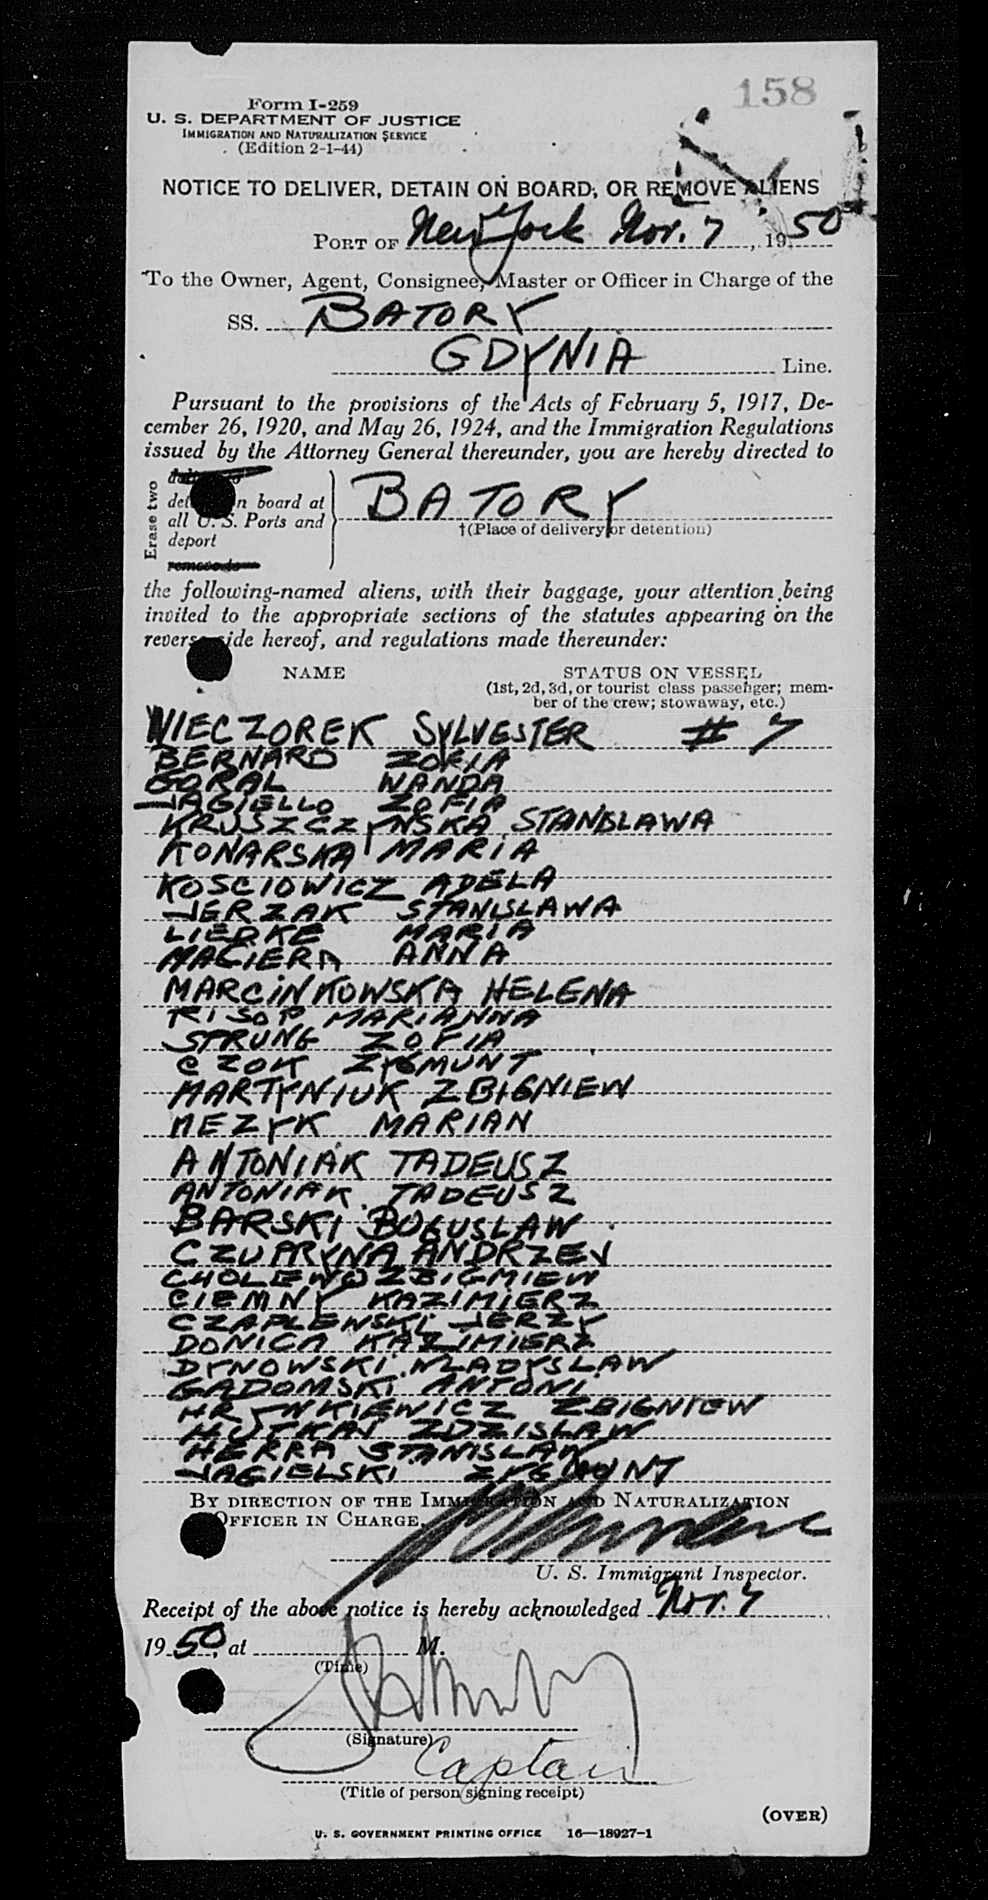 158
Form I-259
U. S. DEPARTMENT OF JUSTICE
IMMIGRATION AND NATURALIZATION SERVICE
(Edition 2-1-44)
NOTICE TO DELIVER, DETAIN ON BOARD, OR REMOVE ALIENS
PORT OF New York Nov. 7, 1950
To the Owner, Agent, Consignee, Master or Officer in Charge of the
SS. BATORY
GDYNIA Line.
Pursuant to the provisions of the Acts of February 5, 1917, De-
cember 26, 1920, and May 26, 1924, and the Immigration Regulations
issued by the Attorney General thereunder, you are hereby directed to
Erase two
n board at
all U. S. Ports and
deport
BATORY
†(Place of delivery or detention)
the following-named aliens, with their baggage, your attention being
invited to the appropriate sections of the statutes appearing on the
reverse side hereof, and regulations made thereunder:
NAME STATUS ON VESSEL
(1st, 2d, 3d, or tourist class passenger; mem-
ber of the crew; stowaway, etc.)
WIECZOREK SYLVESTER # 7
BERNARD ZOFIA
GORAL WANDA
JAGIELLO ZOFIA
KRUSZCZYNSKA STANISLAWA
KONARSKA MARIA
KOSCIOWICZ ADELA
JERZAK STANISLAWA
LIEDKE MARIA
MACIERA ANNA
MARCINKOWSKA HELENA
RISOP MARIANNA
STRUNG ZOFIA
CZOK ZYGMUNT
MARTYNIUK ZBIGNIEW
MEZYK MARIAN
ANTONIAK TADEUSZ
ANTONIAK TADEUSZ
BARSKI BOGUSLAW
CZUPRYNA ANDRZEJ
CHOLEWO ZBIGMIEW
CIEMNY KAZIMIERZ
CZAPLEWSKI JERZY
DONICA KAZIMIERZ
DYNOWSKI WLADYSLAW
GADOMSKI ANTONI
HRYNKIEWICZ ZBIGNIEW
HUTKAJ ZDZISLAW
HERRA STANISLAW
JAGIELSKI ZYGMUNT
BY DIRECTION OF THE IMMIGRATION AND NATURALIZATION
OFFICER IN CHARGE.
U. S. Immigrant Inspector.
Receipt of the above notice is hereby acknowledged Nov. 7
1950, at M.
(Time)
(Signature)
Captain
(Title of person signing receipt)
(OVER)
U. S. GOVERNMENT PRINTING OFFICE 16—18927-1